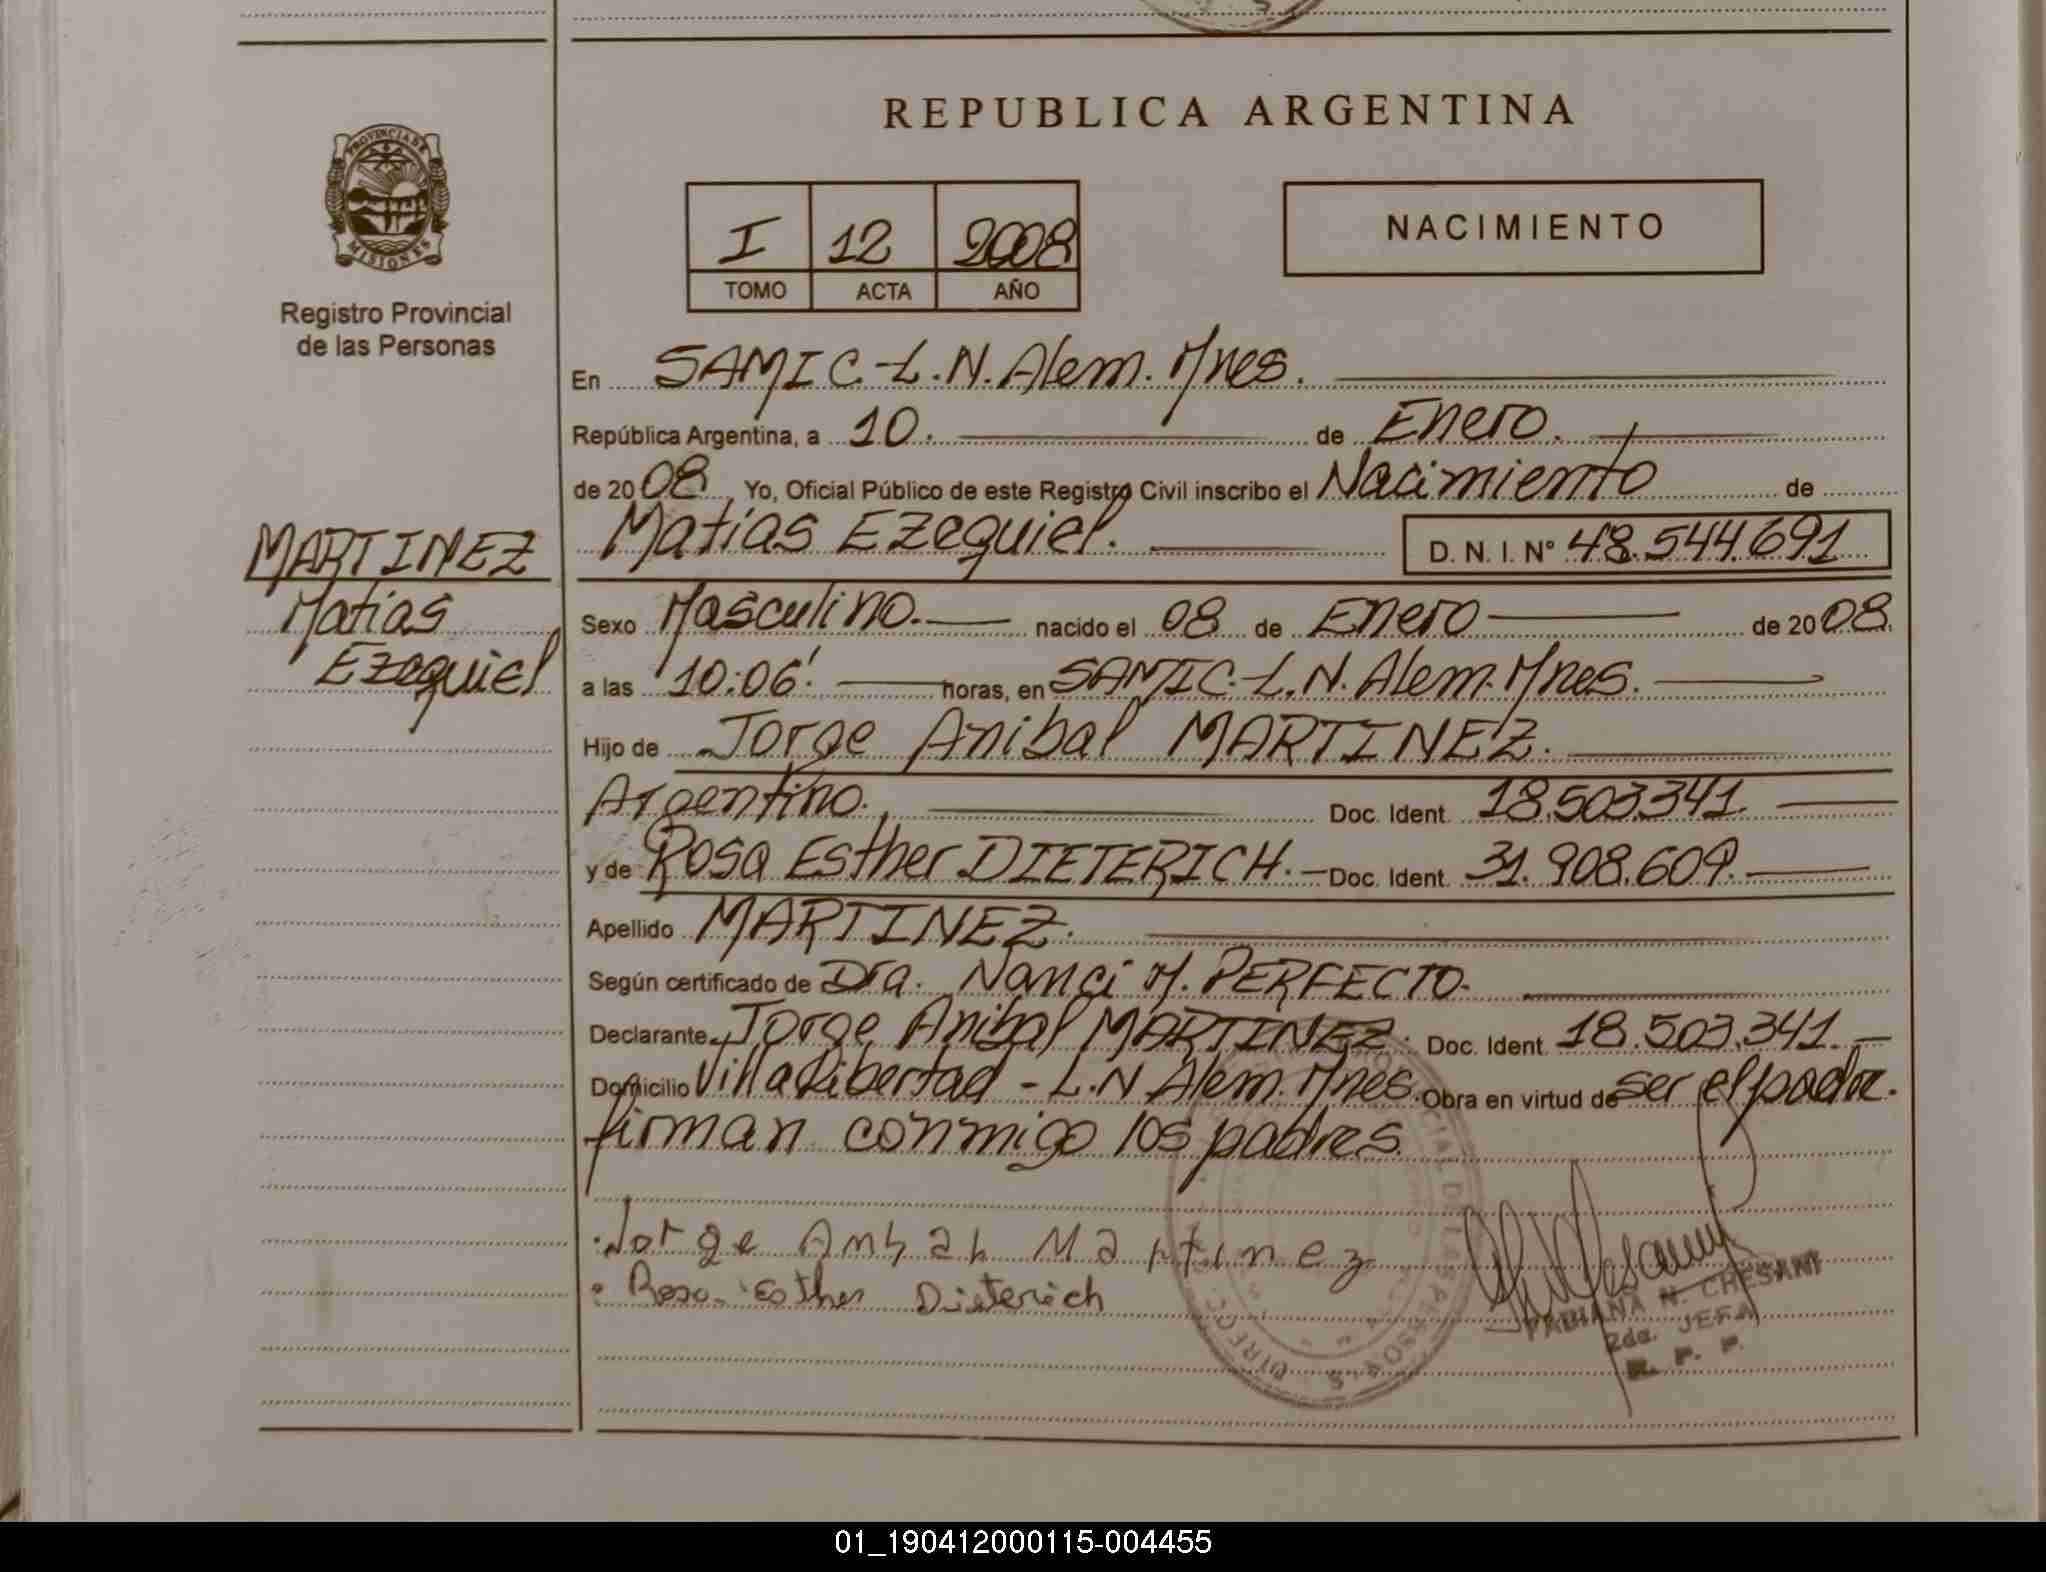 REPUBLICA ARGENTINA
PROVINCIA DE
MISIONES
Registro Provincial
de las Personas
I 12 2008
TOMO ACTA AÑO
NACIMIENTO
MARTINEZ
Matias
Ezequiel
En SAMIC-L.N.Alem.Mnes.
República Argentina, a 10. de Enero.
de 2008 Yo, Oficial Público de este Registro Civil inscribo el Nacimiento de
Matias Ezequiel. D. N. I. N° 48.544.691
Sexo Masculino. nacido el 08 de Enero de 2008.
a las 10:06' horas, en SAMIC-L.N.Alem.Mnes.
Hijo de Jorge Anibal MARTINEZ.
Argentino. Doc. Ident. 18.503.341.
y de Rosa Esther DIETERICH. Doc. Ident. 31.908.609.
Apellido MARTINEZ.
Según certificado de Dra. Nanci M. PERFECTO.
Declarante Jorge Anibal MARTINEZ. Doc. Ident. 18.503.341.
Domicilio Villa Libertad - L.N Alem. Mnes. Obra en virtud de ser el padre.
firman conmigo los padres.
Jorge Anibal Martinez
Rosa Esther Dieterich
FABIANA N. CHESANI
2da. JEFA
R. P. P.
01_190412000115-004455